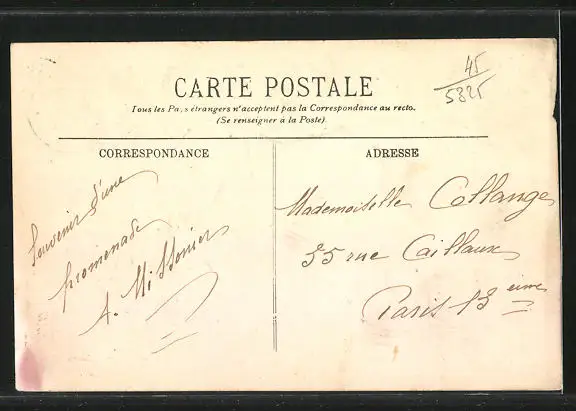 CARTE POSTALE
Tous les Pays étrangers n'acceptent pas la Correspondance au recto.
(Se renseigner à la Poste)
45
5825
CORRESPONDANCE
Souvenir d'une
promenade
A. Missonier
ADRESSE
Mademoiselle Collanges
35 rue Caillaux
Paris 13 eime